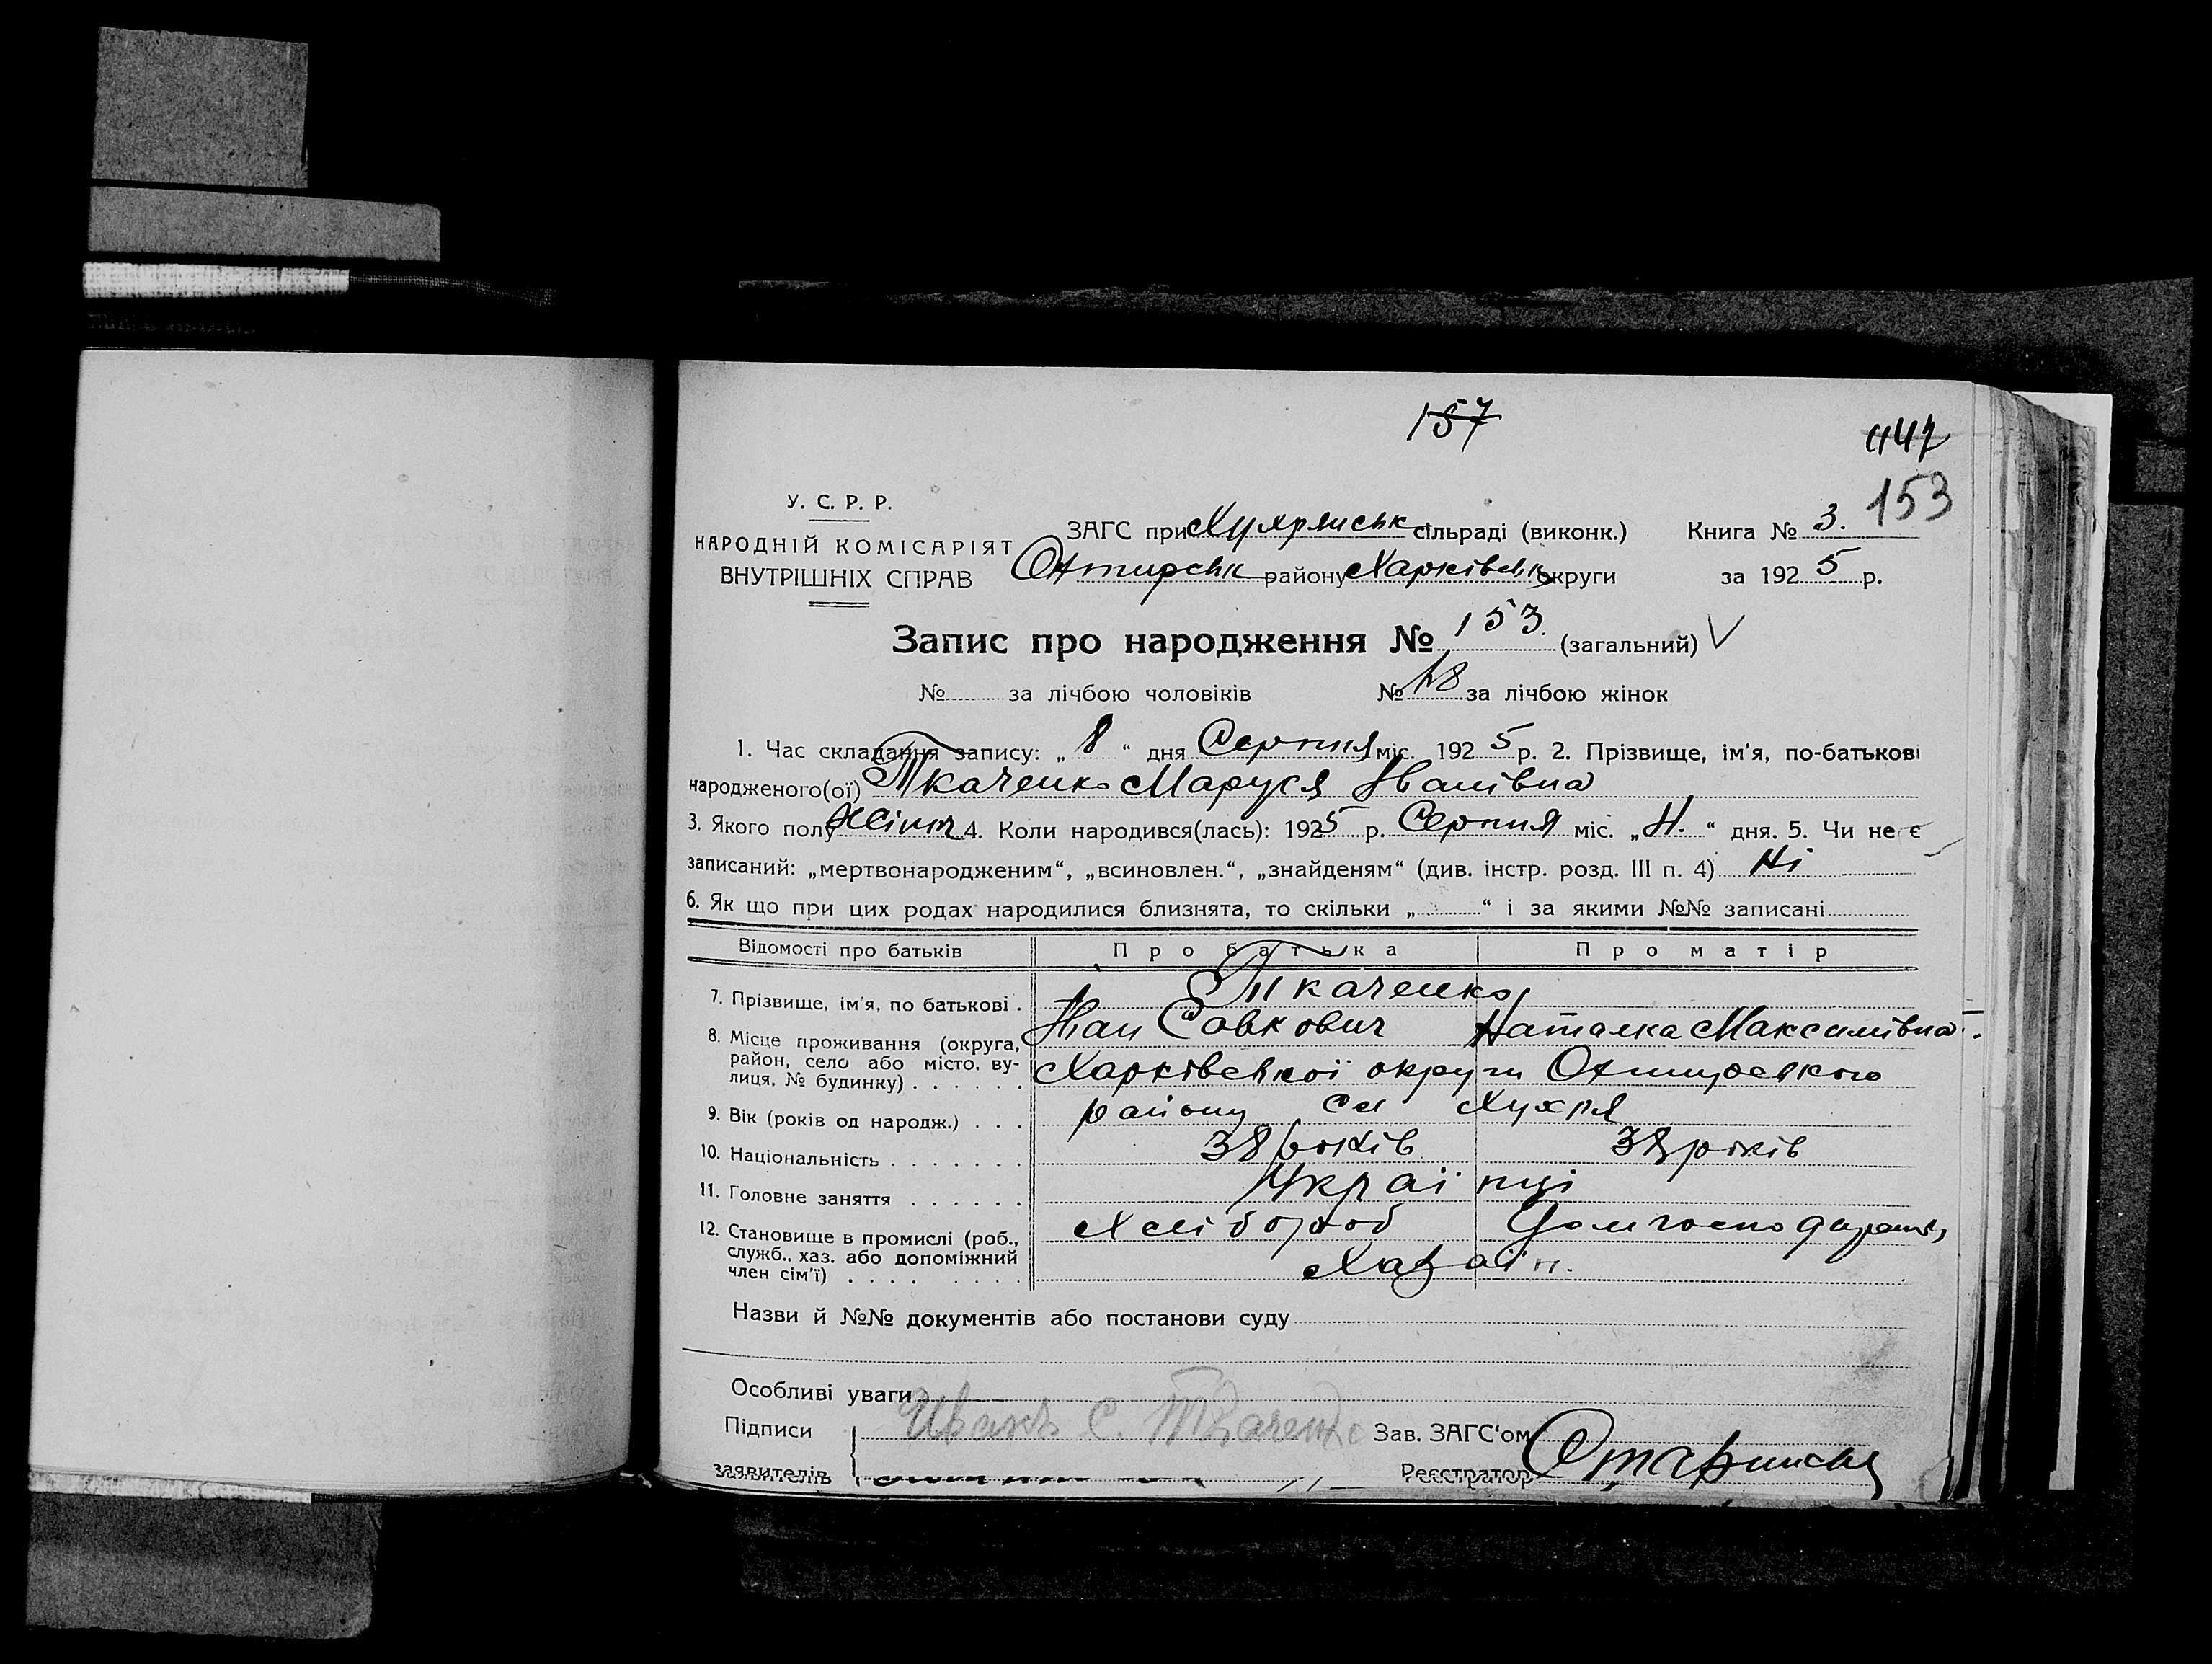 157
447
153
У. С. Р. Р.
НАРОДНІЙ КОМІСАРІЯТ
ВНУТРІШНІХ СПРАВ
ЗАГС при Хухрянськ сільраді (виконк.) Книга № 3.
Охтирськ району Харківськ округи за 1925 р.
Запис про народження № 153. (загальний)
№ за лічбою чоловіків № за лічбою жінок
1. Час складання запису: „ 8 “ дня Серпня міс. 1925 р. 2. Прізвище, ім'я, по-батькові
народженого(ої) Ткаченко Маруся Іванівна
3. Якого полу Жіноч 4. Коли народився(лась): 1925 р. Серпня міс. „ “ дня. 5. Чи не є
записаний: „мертвонародженим“, „всиновлен.“, „знайденям“ (див. інстр. розд. III п. 4) Ні
6. Як що при цих родах народилися близнята, то скільки „ “ і за якими №№ записані
Відомості про батьків Про батька Про матір
7. Прізвище, ім'я, по батькові . Ткаченко
Іван Савкович Наталка Максимівна
8. Місце проживання (округа,
район, село або місто, ву-
лиця, № будинку) . . . . . . Харківської округи Охтирського
району се Хухря
9. Вік (років од народж.) . . . 38 років 38 років
10. Національність . . . . . . . Українці
11. Головне заняття . . . . . . Хлібороб Домгосподарка
12. Становище в промислі (роб.,
служб., хаз. або допоміжний
член сім'ї) . . . . . . . . Хазаїн.
Назви й №№ документів або постанови суду
Особливі уваги
Підписи Иванъ С. Ткаченко Зав. ЗАГС'ом
заявителів Реєстратор